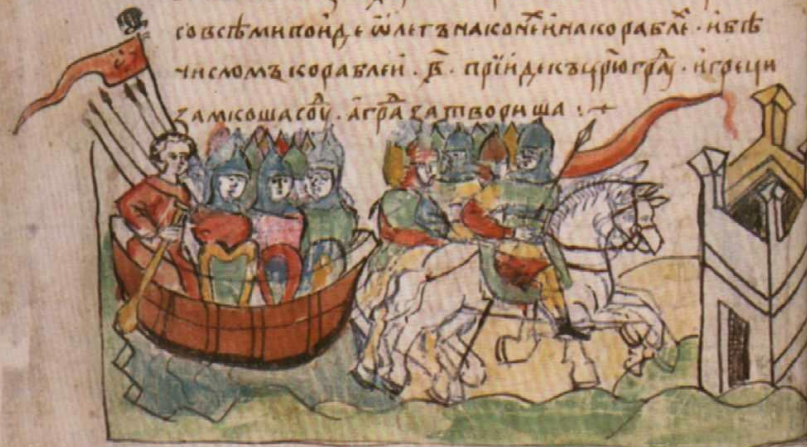 совсѣми поиде ѡлегъ на конеⷯ и на кораблеⷯ · и бѣ
числомъ кораблеи · в҃ · прїиде къ цр҃ю граⷣ · и греци
замкоша соуⷣ · а граⷣ затвориша :~